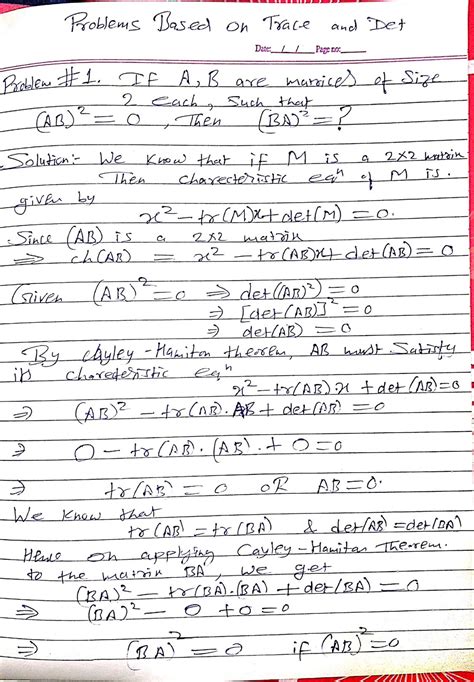 Problems Based on Trace and Det
Date: / / Page no:
Problem #1. If A, B are marrices of Size
2 each, Such that
(AB)² = 0 , Then (BA)² = ?
Solution:- We Know that if M is a 2x2 matrix
Then charecteristic eqⁿ of M is.
given by
x² - tr(M)x + det(M) = 0.
Since (AB) is a 2x2 matrix
⇒ ch(AB) = x² - tr(AB)x + det(AB) = 0
Given (AB)² = 0 ⇒ det((AB)²) = 0
⇒ [det(AB)]² = 0
⇒ det(AB) = 0
By Cayley-Hamilton theorem, AB must Satisfy
its charecteristic eqⁿ
x² - tr(AB)x + det(AB) = 0
⇒ (AB)² - tr(AB). AB + det(AB) = 0
⇒ 0 - tr(AB).(AB). + 0 = 0
⇒ tr(AB) = 0 OR AB = 0.
We Know that
tr(AB) = tr(BA) & det(AB) = det(BA)
Hence on applying Cayley-Hamilton Theorem.
to the matrix BA, we get
(BA)² - tr(BA).(BA) + det(BA) = 0
⇒ (BA)² - 0 + 0 = 0
⇒ (BA)² = 0 if (AB)² = 0